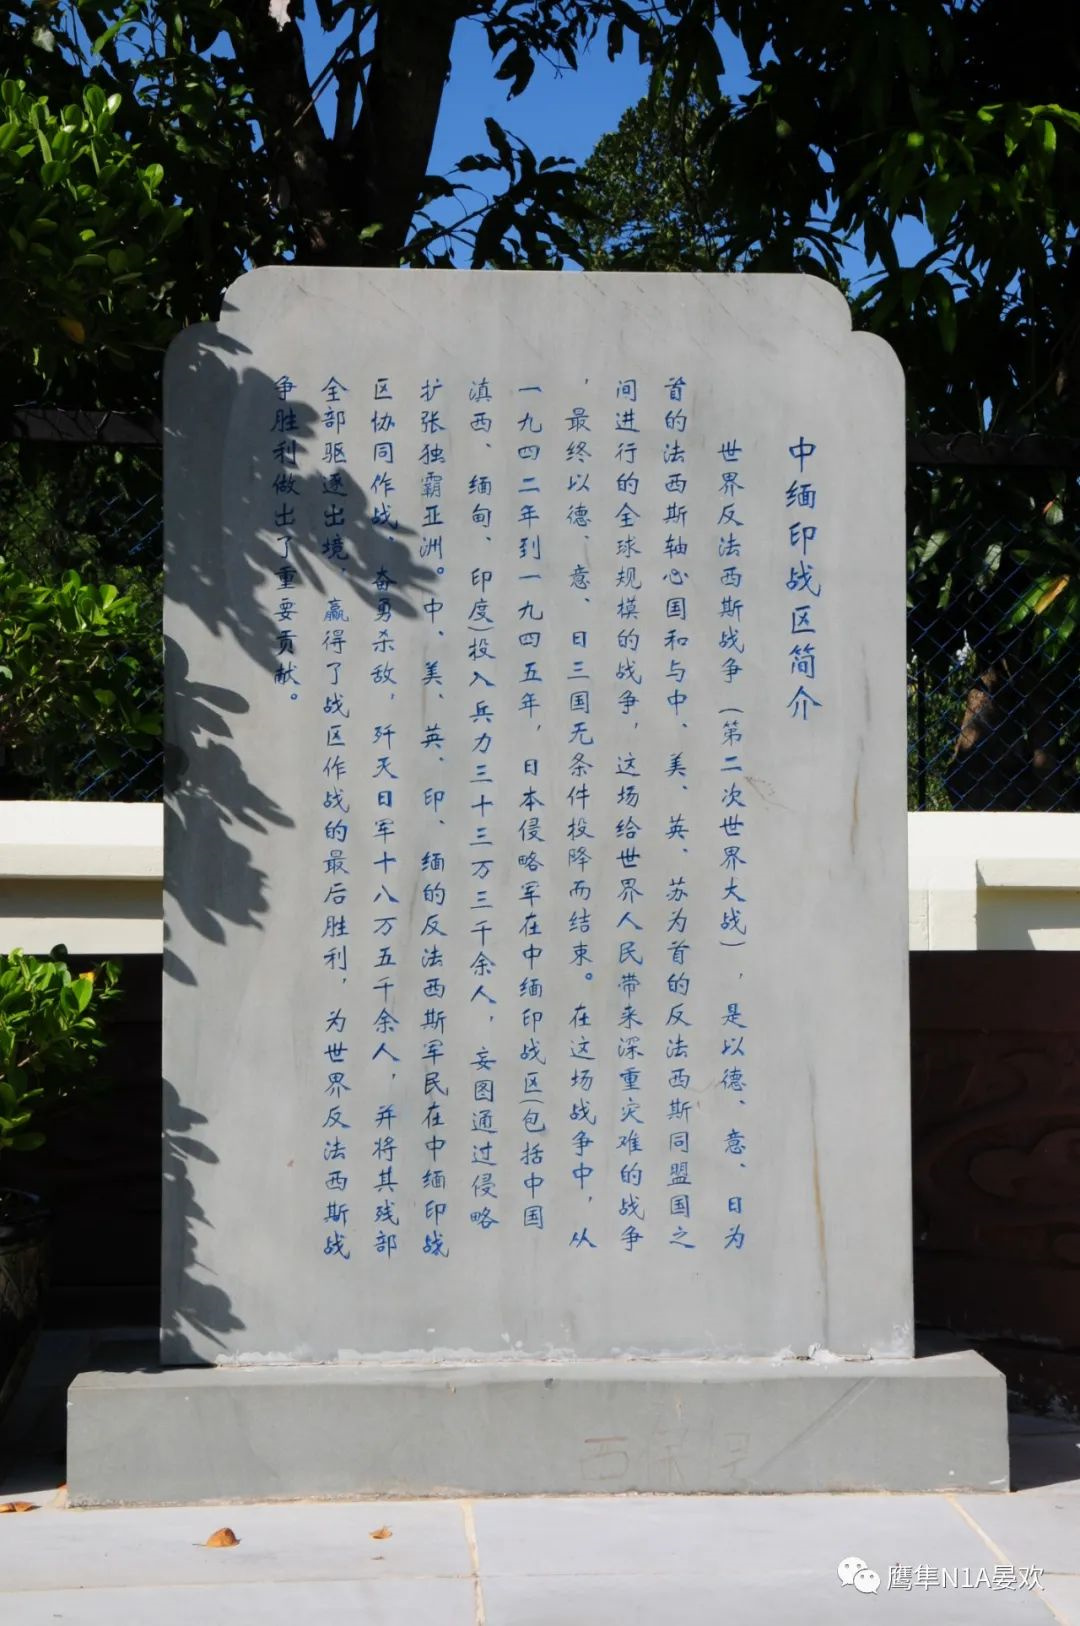 中缅印战区简介
世界反法西斯战争（第二次世界大战），是以德、意、日为
首的法西斯轴心国和与中、美、英、苏为首的反法西斯同盟国之
间进行的全球规模的战争，这场给世界人民带来深重灾难的战争
，最终以德、意、日三国无条件投降而结束。在这场战争中，从
一九四二年到一九四五年，日本侵略军在中缅印战区（包括中国
滇西、缅甸、印度）投入兵力三十三万三千余人，妄图通过侵略
扩张独霸亚洲。中、美、英、印、缅的反法西斯军民在中缅印战
区协同作战、奋勇杀敌，歼灭日军十八万五千余人，并将其残部
全部驱逐出境、赢得了战区作战的最后胜利，为世界反法西斯战
争胜利做出了重要贡献。
鹰隼N1A晏欢